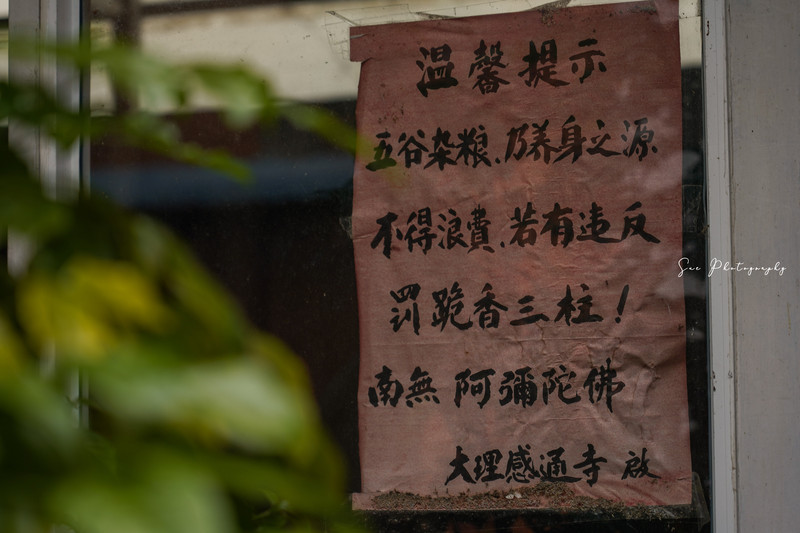 温馨提示
五谷杂粮、乃养身之源
不得浪費、若有违反
罰跪香三柱！
南無阿彌陀佛
大理感通寺 啟
Sue Photography